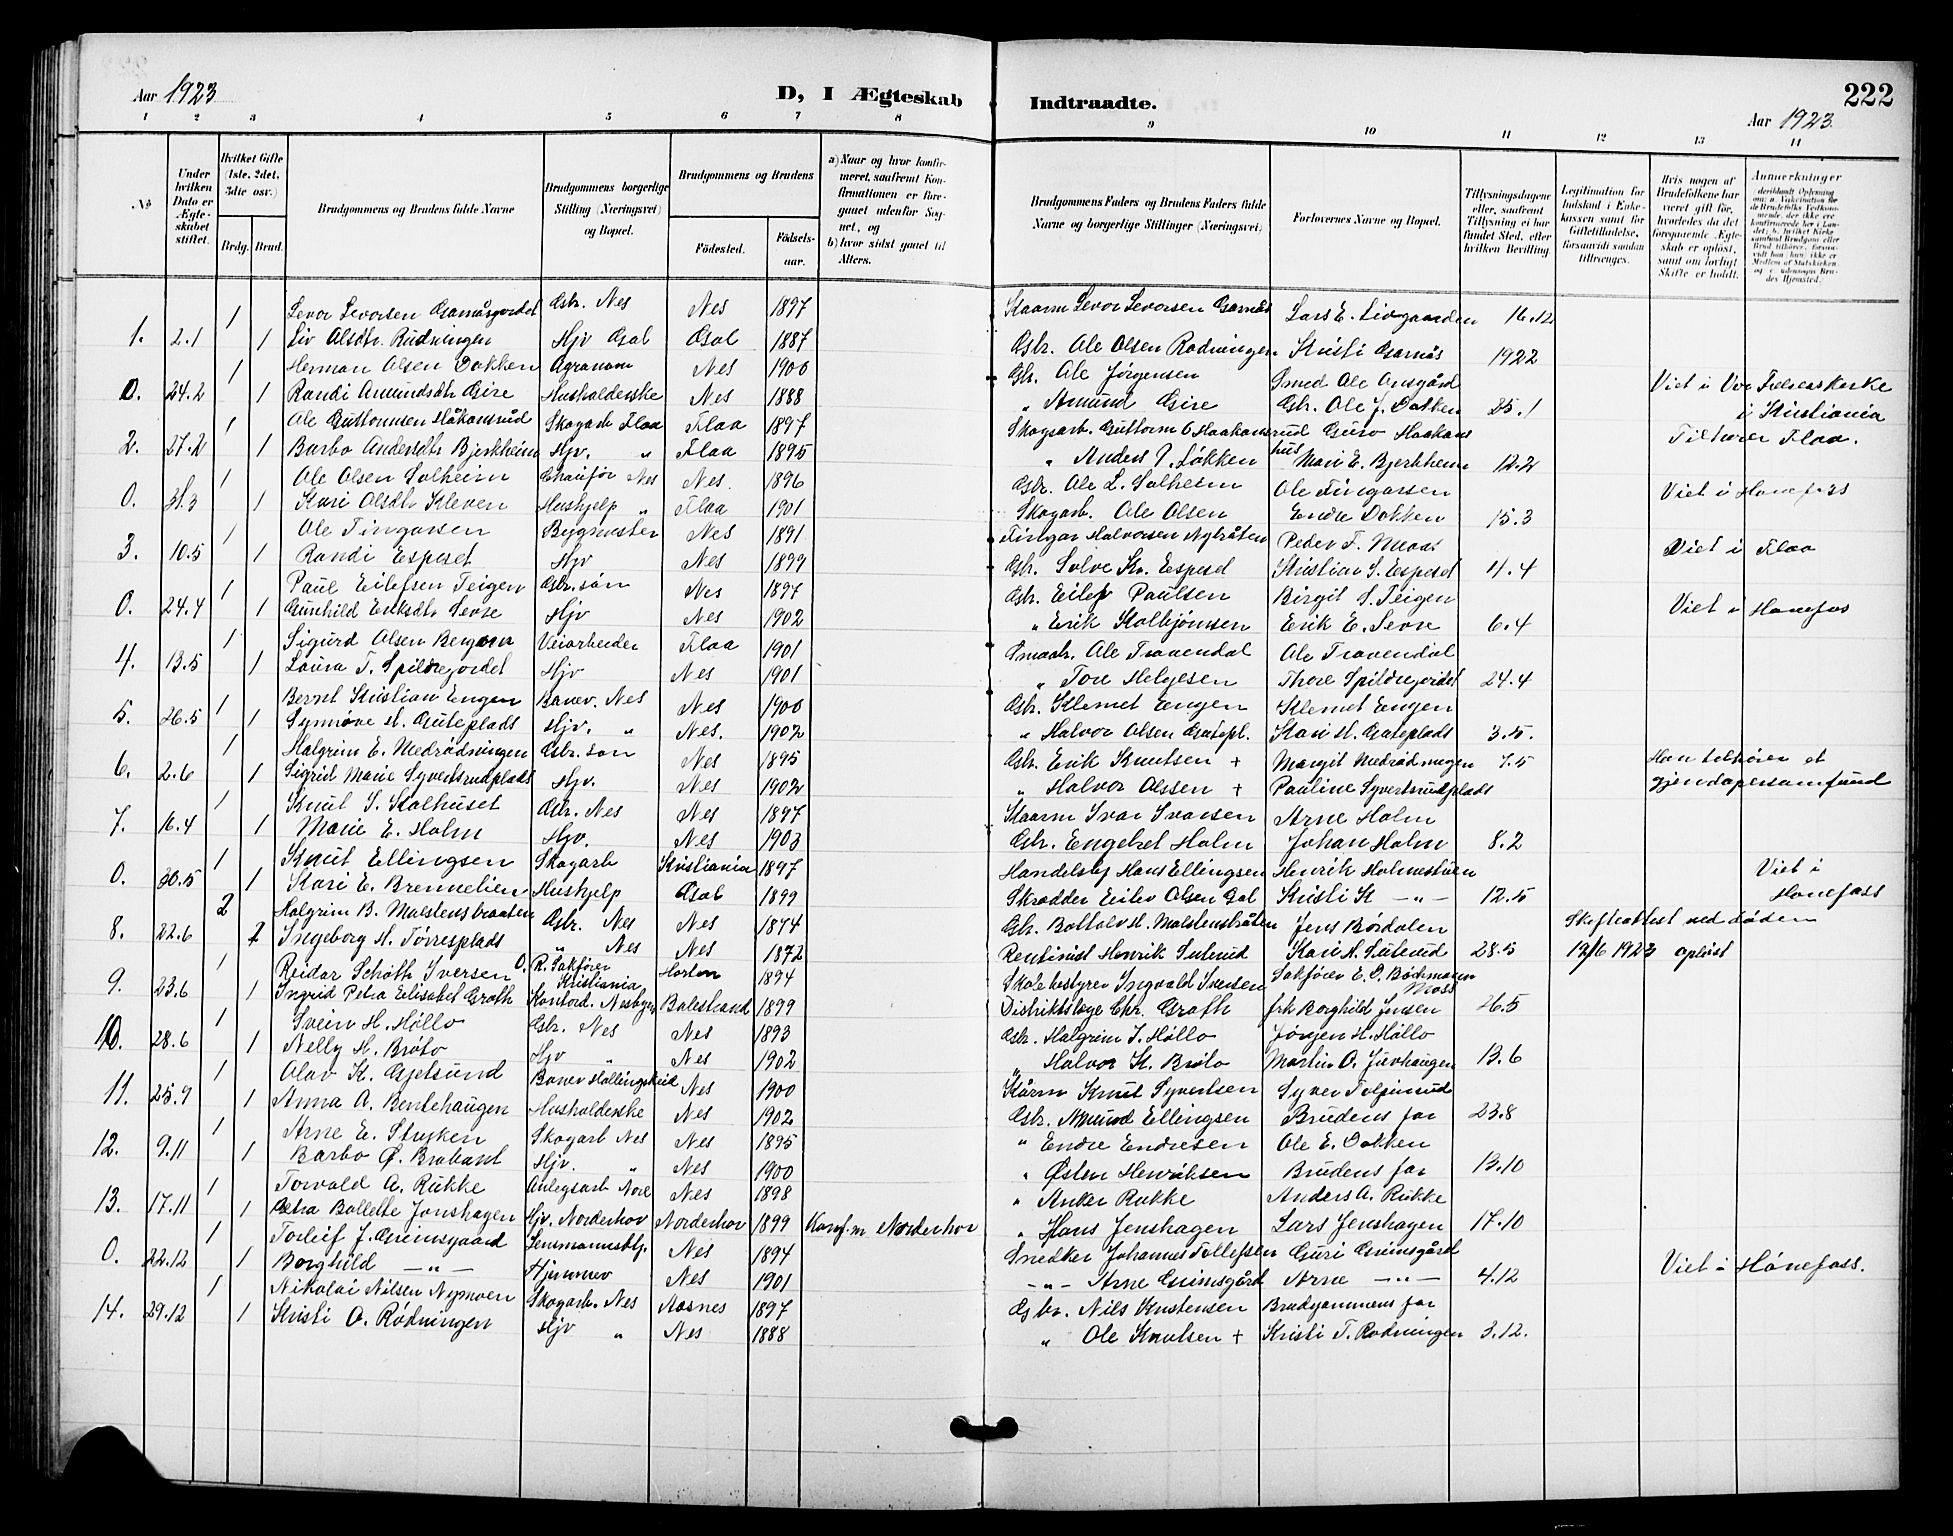 222
Aar 1923
D, I Ægteskab
Indtraadte.
Aar 1923.
1 2 3 4 5 6 7 8 9 10 11 12 13 14
№
Under hvilken Dato er Ægteskabet stiftet.
Hvilket Gifte (1ste, 2det, 3die osv.)
Brdg. Brud.
Brudgommens og Brudens fulde Navne
Brudgommens borgerlige Stilling (Næringsvei) og Bopæl.
Brudgommens og Brudens
Födested.
Födselsaar.
a) Naar og hvor konfirmeret, saafremt Konfirmationen er foregaaet udenfor Sognet, og
b) hvor sidst gaaet til Alters.
Brudgommens Faders og Brudens Faders fulde Navne og borgerlige Stillinger (Næringsvei)
Forlovernes Navne og Bopæl.
Tillysningsdagene eller, saafremt Tillysning ei har fundet Sted, efter hvilken Bevilling
Legitimation for Indskud i Enkekassen samt for Giftetilladelse, forsaavidt saadan tiltrænges.
Hvis nogen af Brudefolkene har været gift för, hvorledes da det foregaaende Ægteskab er oplöst, samt om lovligt Skifte er holdt.
Anmærkninger
1 Levor Levorsen Garnåsgordet Gbr. Nes Nes 1897 Kaarm Levor Levorsen Garnås Lars E. Livgaarden 16.12
1. 2.1 1 Liv Olsdtr. Rudningen Hjv Gol Gol 1887 Gbr. Ole Olsen Rodningen Kristi Garnås 1922
1 Herman Olsen Dokken Agronom Nes 1900 Gbr. Ole Jörgensen Smed Ole Ansgård
0. 24.2 1 Randi Amundsdtr Gire Husholderske Nes 1888 " Amund Gire Gbr. Ole J. Dokken 25.1 Viet i Vor Frelserskirke i Kristiania
1 Ole Guttormsen Håkonsrud Skogarb Flaa Flaa 1897 Skogsarb. Guttorm O Haakonsrud Guro Haakons
2. 27.2 1 Barbo Andersdtr Bjerkheim Hjv. " Flaa 1895 " Anders J. Løkken Mari E. Bjerkheim 12.2 Tilhører Flaa.
1 Ole Olsen Solheim Chaufør Nes Nes. 1896 Gbr. Ole L. Solheim Ole Fingarsen
0. 31.3 1 Kari Olsdtr Kleven Hushjelp " Flaa 1901 Skogarb. Ole Olsen Endre Dokken 15.3 Viet i Hønefoss
1 Ole Fingarsen Bygmester Nes 1891 Fingar Halvorsen Nybråten Peder T. Moas
3. 10.5 1 Randi Espeset Hjv Nes 1899 Gbr. Solve Kr. Espeset Kristian S. Espeset 4.4 Viet i Flaa
1 Paul Eilefsen Teigen Gbr. søn Nes 1897 Gbr. Eilef Paulsen Birgit S. Teigen
0. 24.4 1 Gunhild Eriksdtr Sevre Hjv Nes 1902 " Erik Kolbjørnsen Erik E. Sevre 6.4 Viet i Hønefos
1 Sigurd Olsen Bergom Veiarbeider Flaa 1901 Smaabr. Ole Travendal Ole Travendal
4. 13.5 1 Laura T. Spildrejordet Hjv Nes 1901 " Tore Helgesen Thore Spildrejordet 24.4
1 Bernt Kristian Engen Banev. Nes Nes 1900 Gbr. Klemet Engen Klemet Engen
5. 26.5 1 Synnøve H. Guteplads Hjv. " Nes. 1902 " Halvor Olsen Gutepl. Kari H. Guteplads 3.5.
1 Halgrim E. Medrødningen Gbr. søn Nes 1895 Gbr. Erik Knutsen + Margit Medrødningen 7.5 Han tilhører et
6. 2.6 1 Sigrid Marie Syvertsrudplads Hjv. Nes 1902 " Halvor Olssen + Pauline Syvertsrudplads gjendøpersamfund
1 Knut I. Kolhuset Gbr. Nes Nes 1897 Kaarm Ivar Ivarsen Arne Holm
7. 16.4 1 Marie E. Holm Hjv. Nes 1903 Gbr. Engebret Holm Johan Holm 8.2
1 Knut Ellingsen Skogarb Kristiania 1897 Handelsbj Hans Ellingsen Henrik Holmestuen Viet i
0. 30.5 1 Kari E. Brennelien Hushjelp Gol 1899 Skrædder Eilev Olsen Gol Kristi K —"— 12.5 Hønefoss
2 Halgrim B. Molstensbraaten Gbr. Nes Nes 1874 Gbr. Bottolv H. Molstensbråten Jens Børdalen Skifteattest ved døden
8. 22.6 2 Ingeborg H. Tørresplads " Nes Nes 1872 Rentinist Henrik Suterud Kari H. Suterud 28.5 12/6 1923 opløst
1 Reidar Schøth Iversen O. R. Sakfører Kristiania Horten 1894 Skolebestyrer Ingvald Iversen Sakfører E. O. Bødtmann Moss
9. 23.6 1 Ingrid Petra Elisabet Groth Kontord. Nesbyen Balestrand 1899 Distriktslæge Chr. Groth frk Borghild Jensen 26.5
1 Svein H. Høllo Gbr. Nes Nes 1893 Gbr. Halgrim I. Høllo Jørgen H. Høllo
10. 28.6 1 Nelly H. Brøto Hjv " Nes 1902 " Halvor K. Brøto Martin O. Juvhaugen 13.6
1 Olav K. Gjelsund Banev Hallingskeid Nes 1900 Kårm Knut Syvertsen Syver Tolpinrud
11. 25.9 1 Anna A. Bentehaugen Husholderske Nes 1902 Gbr. Amund Ellingsen Brudens far 23.8
1 Arne E. Stryken Skogarb Nes Nes 1895 " Endre Endresen Ole E. Dokken
12. 9.11 1 Barbo Ø. Brabant Hjv. " Nes 1900 " Østen Henriksen Brudens far 13.10
1 Torvald A. Rukke Anlegsarb Nore Nes 1898 " Anker Rukke Anders A. Rukke
13. 17.11 1 Petra Bollette Jonshagen Hjv. Norderhov Norderhov 1899 Konf. m Norderhov " Hans Jenshagen Lars Jenshagen 17.10
1 Torleif J. Grimsgaard Lensmannsbtj. Nes 1894 Snedker Johannes Tollefsen Guri Grimsgård
0. 22.12 1 Borghild —"— Hjemmev Nes 1901 —"— Arne Grimsgård Arne —"— 4.12 Viet i Hönefoss.
1 Nikolai Nilsen Nymoen Skogarb. Nes Aasnes 1897 Gbr. Nils Kristensen Brudgommens far
14. 29.12 1 Kristi O. Rodningen Hjv " Nes 1888 " Ole Knutsen + Kristi T. Rodningen 3.12.